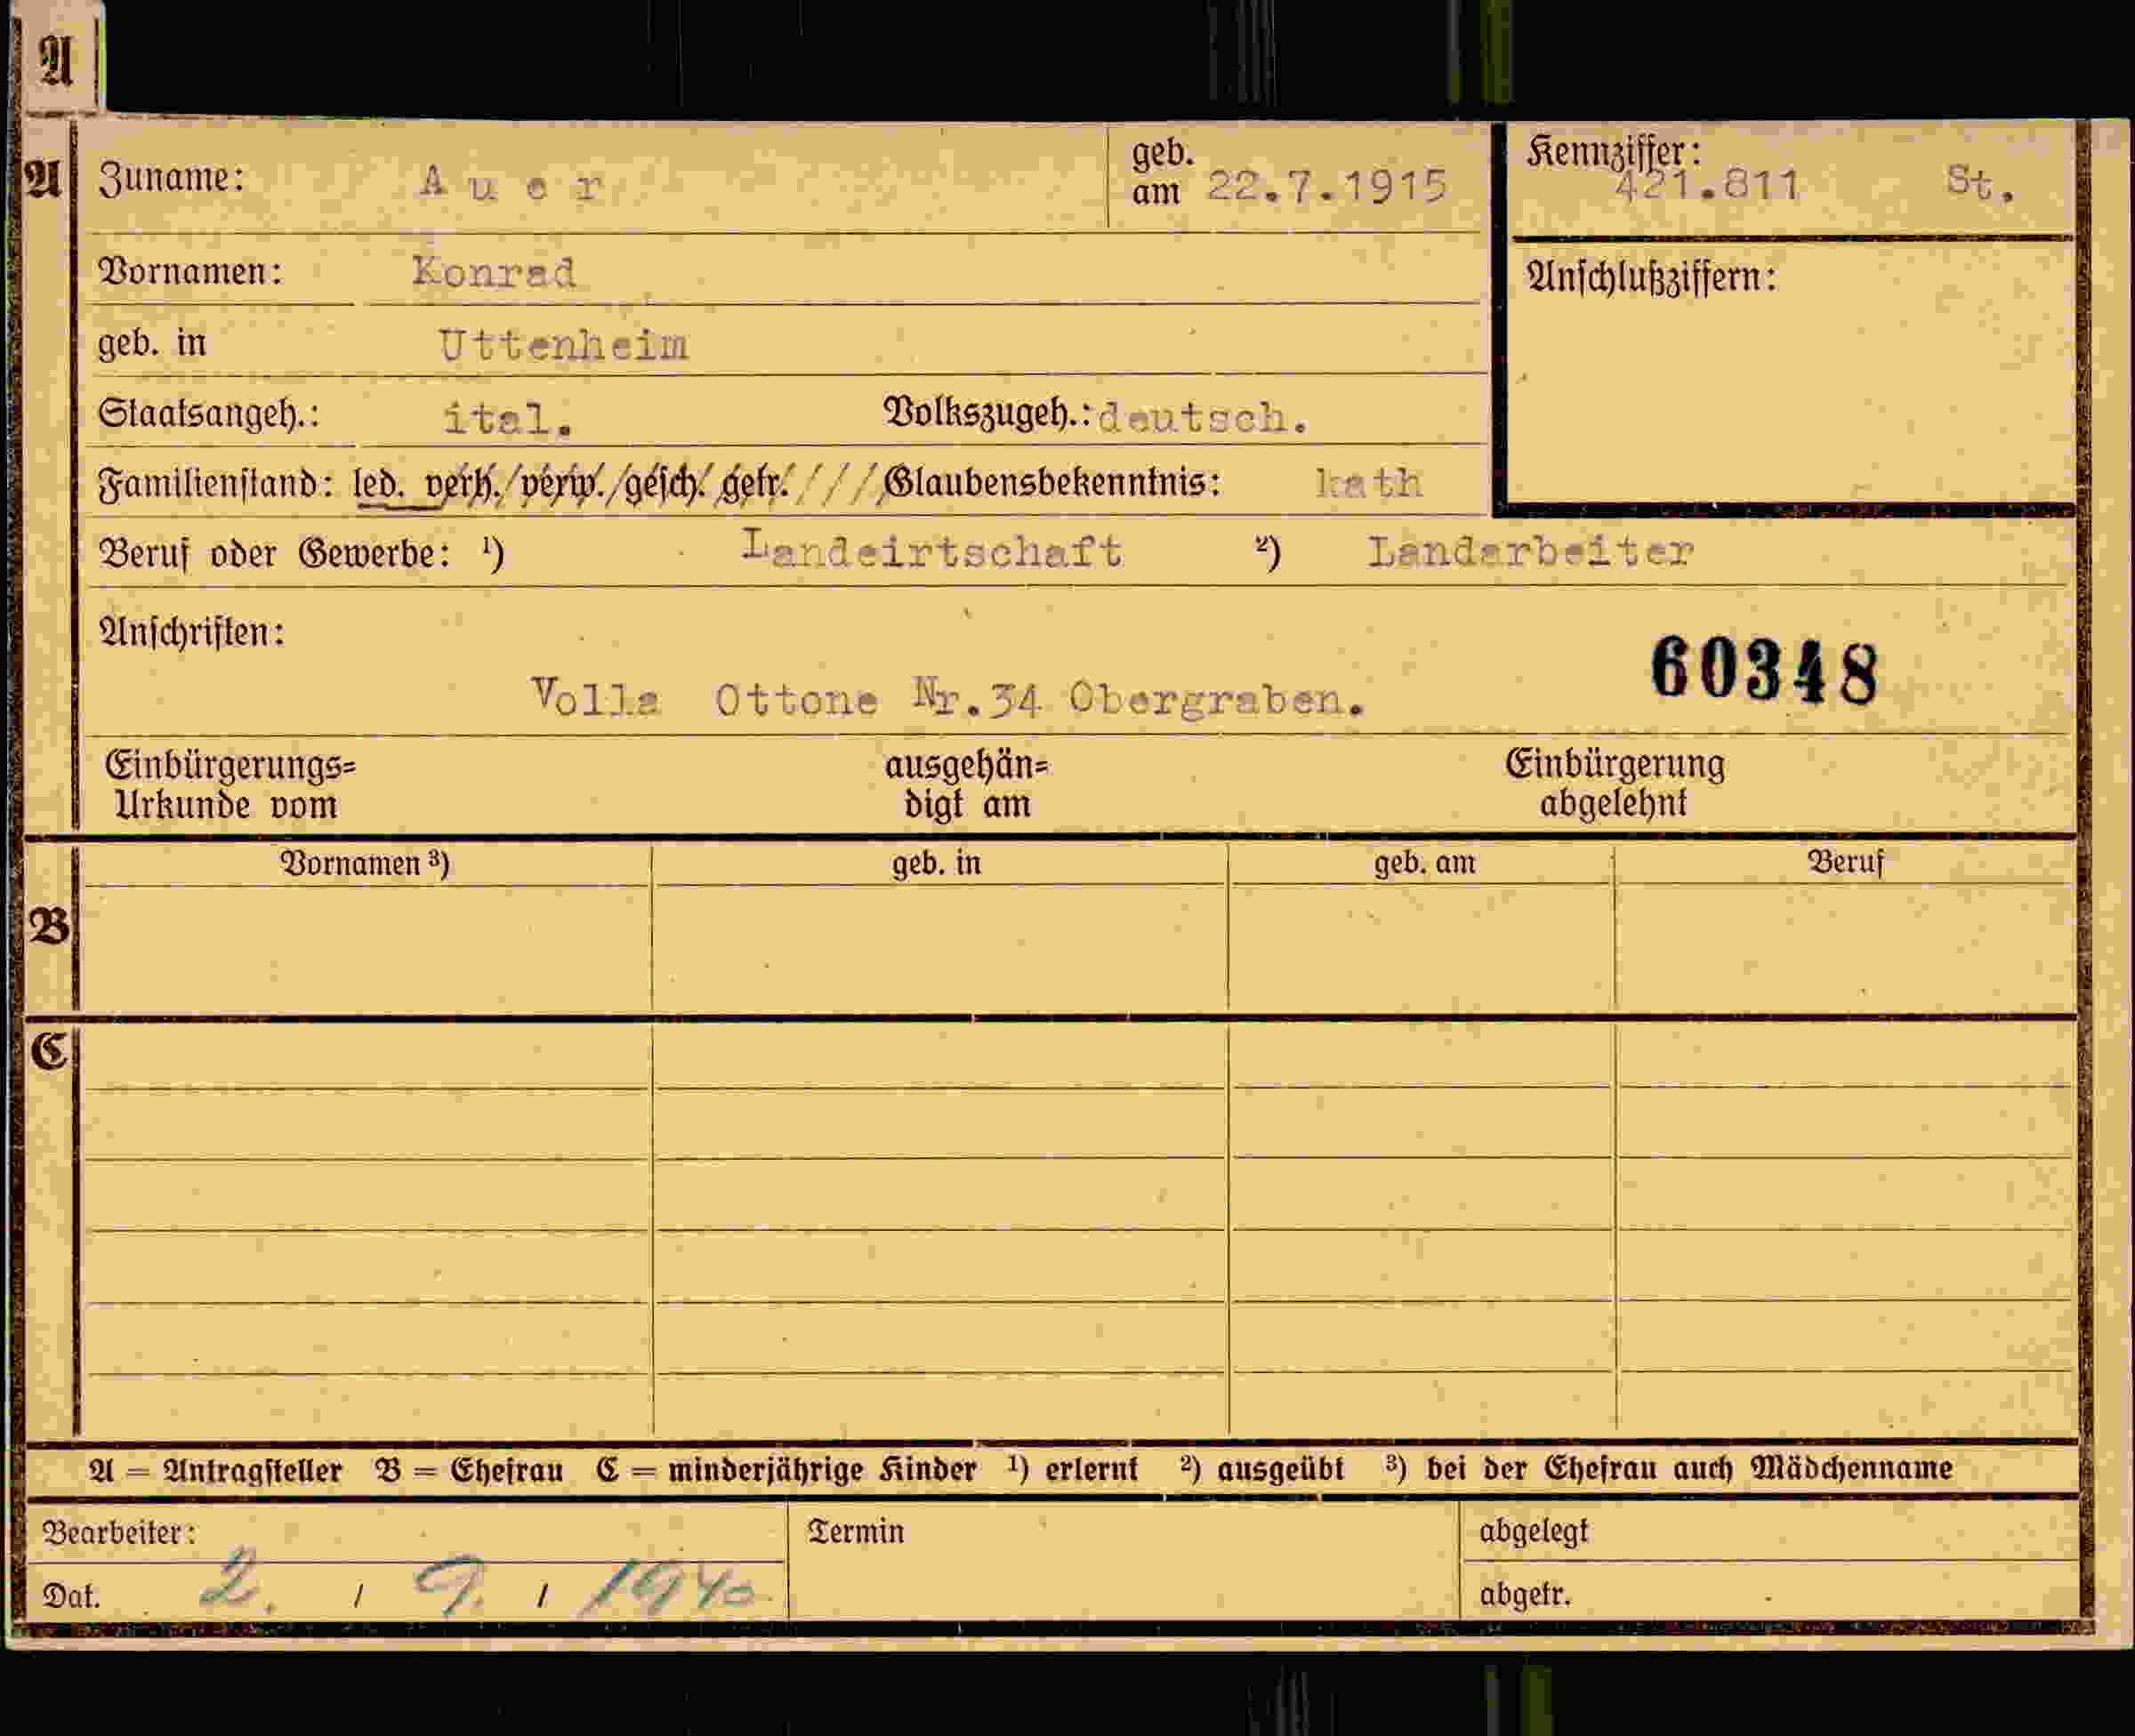 A
A Zuname: Auer geb. am 22.7.1915 Kennziffer: 421.811 St.
Vornamen: Konrad Anschlußziffern:
geb. in Uttenheim
Staatsangeh.: ital. Volkszugeh.: deutsch.
Familienstand: led. verh./verw./gesch. getr. //// Glaubensbekenntnis: kath
Beruf oder Gewerbe: ¹) Landeirtschaft ²) Landarbeiter
Anschriften: 60348
Volla Ottone Nr.34 Obergraben.
Einbürgerungs= ausgehän= Einbürgerung
Urkunde vom digt am abgelehnt
Vornamen ³) geb. in geb. am Beruf
B
C
A = Antragsteller B = Ehefrau C = minderjährige Kinder ¹) erlernt ²) ausgeübt ³) bei der Ehefrau auch Mädchenname
Bearbeiter: Termin abgelegt
Dat. 2. / 9. / 1940 abgetr.